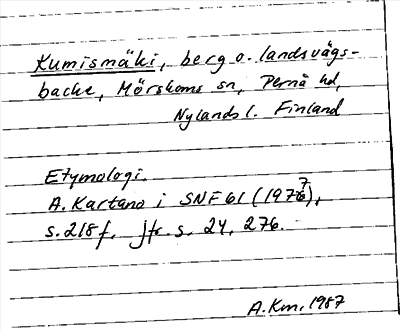 Kumismäki, berg o. landsvägs-
backe, Mörskoms sn, Pernå hd,
Nylands l. Finland
Etymologi.
A. Kartano i SNF 61 (1977),
s. 218 f. jfr. s. 24, 276.
A. Km. 1987